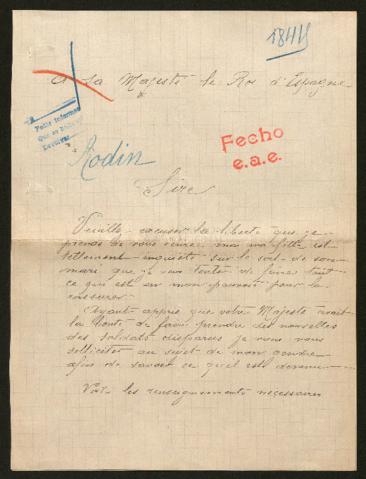 1844
A Sa Majesté le Roi d'Espagne
Pedir informes
que se
Rodin
Fecho
e.a.e.
Sire
Veuillez excuser la liberté que je
prends de vous écrire mais ma fille est
tellement inquiète sur le sort de son
mari que je veux tenter de faire tout
ce qui est en mon pouvoir pour la
rassurer
Ayant appris que votre Majesté avait
la bonté de faire prendre des nouvelles
des soldats disparus je viens vous
solliciter au sujet de mon gendre
afin de savoir ce qu'il est devenu
Voici les renseignements nécessaires